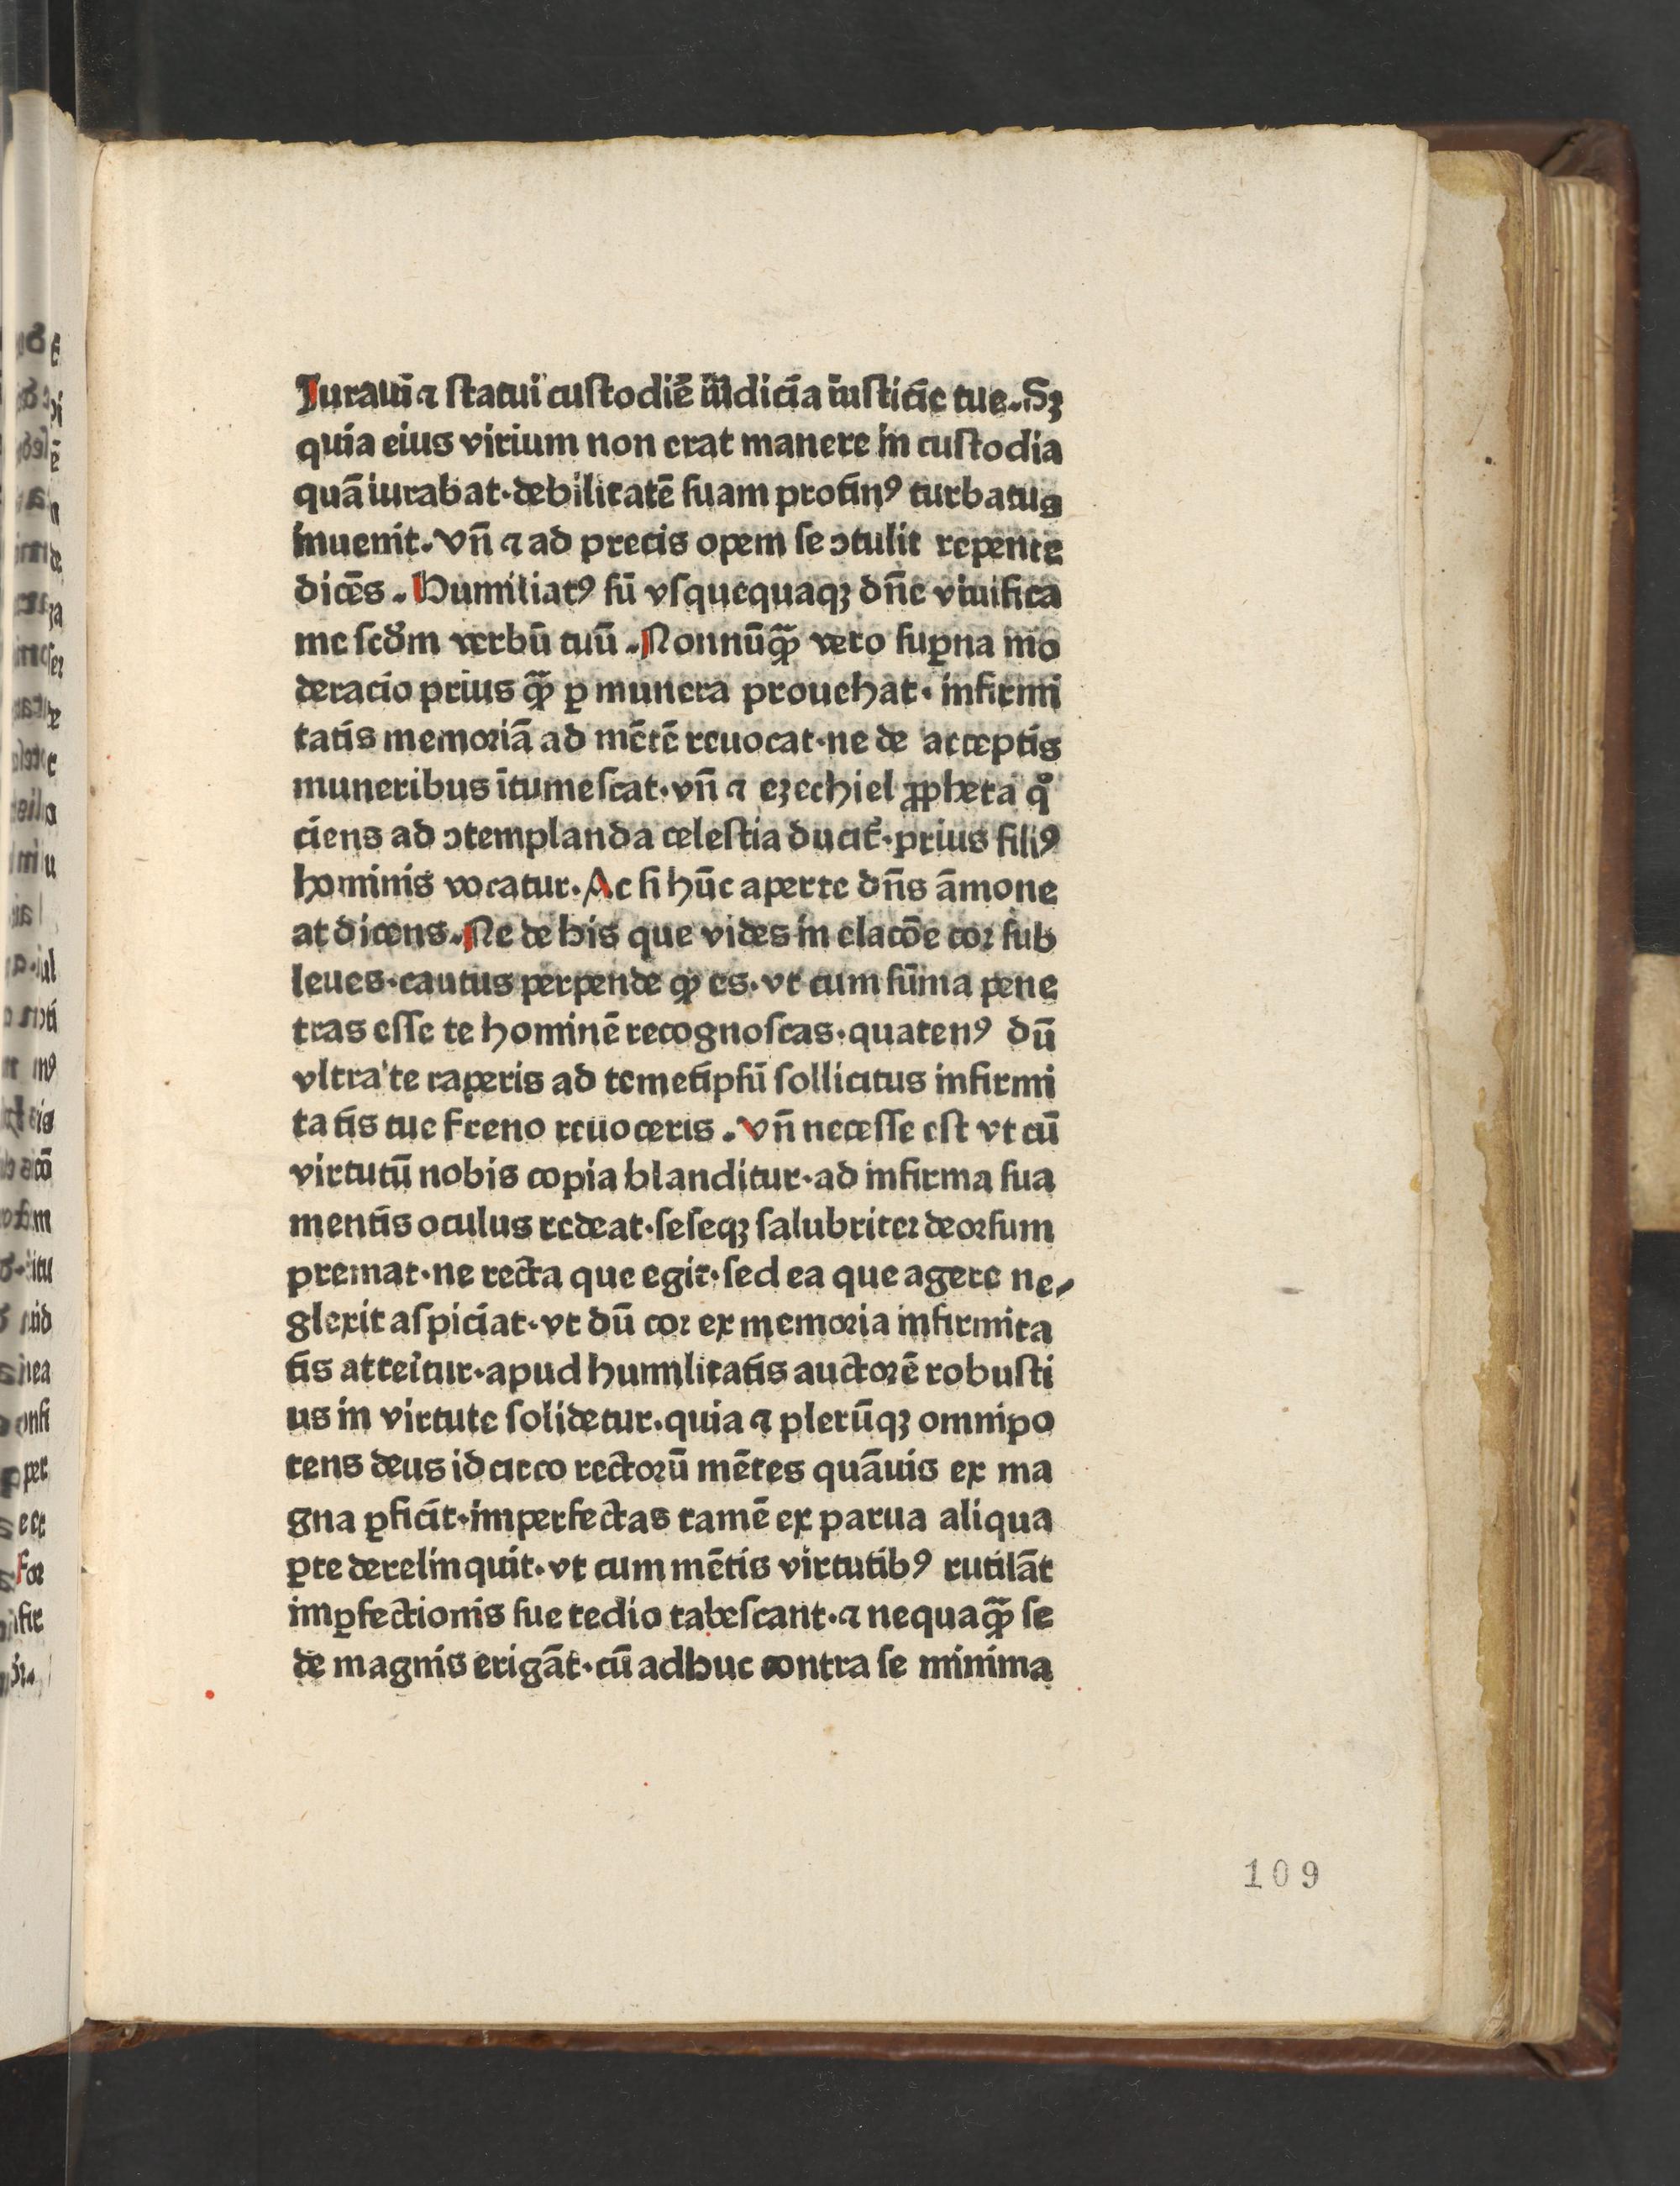 Iuraui ⁊ ſtatui cuſtodiē iudicia iuſticie tue. Sꝫ
quia eius virium non erat manere in cuſtodia
quā iurabat·debilitatē ſuam protinꝰ turbatus
inuenit. Vn̄ ⁊ ad precis opem ſe ↄtulit repente
dicēs. Humiliatꝰ ſū vſquequaqꝫ dn̄e viuifica
me ſcd̄m verbū tuū. Nonnūqꝫ̄ vero ſuꝑna mo
deracio prius qꝫ̄ ꝑ munera prouehat· infirmi
tatis memoriā ad mētē reuocat·ne de acceptis
muneribus ītumeſcat·vn̄ ⁊ ezechiel ꝓpheta qͦ
ciens ad ↄtemplanda celeſtia ducit᷑·prius filiꝰ
hominis vocatur. Ac ſi hūc aperte dn̄s āmone
at dicens. Ne de his que vides in elacōe cor ſub
leues·cautus perpende qꝫ es·vt cum ſūma pene
tras eſſe te hominē recognoſcas·quatenꝰ dū
vltra te raperis ad temetipſū ſollicitus infirmi
tatis tue freno reuoceris. Vn̄ neceſſe eſt vt cū
virtutū nobis copia blanditur·ad infirma ſua
mentis oculus redeat·ſeſeqꝫ ſalubriter deorſum
premat·ne recta que egit·ſed ea que agere ne⸗
glexit aſpiciat·vt dū cor ex memoria infirmita
tis atteritur·apud humilitatis auctorē robuſti
us in virtute ſolidetur·quia ⁊ plerūqꝫ omnipo
tens deus idcirco rectorū mētes quāuis ex ma
gna ꝑficit·imperfectas tamē ex parua aliqua
ꝑte derelinquit·vt cum mētis virtutibꝰ rutilāt
imꝑfectionis ſue tedio tabeſcant·⁊ nequaqꝫ̄ ſe
de magnis erigāt·cū adhuc contra ſe minima
109